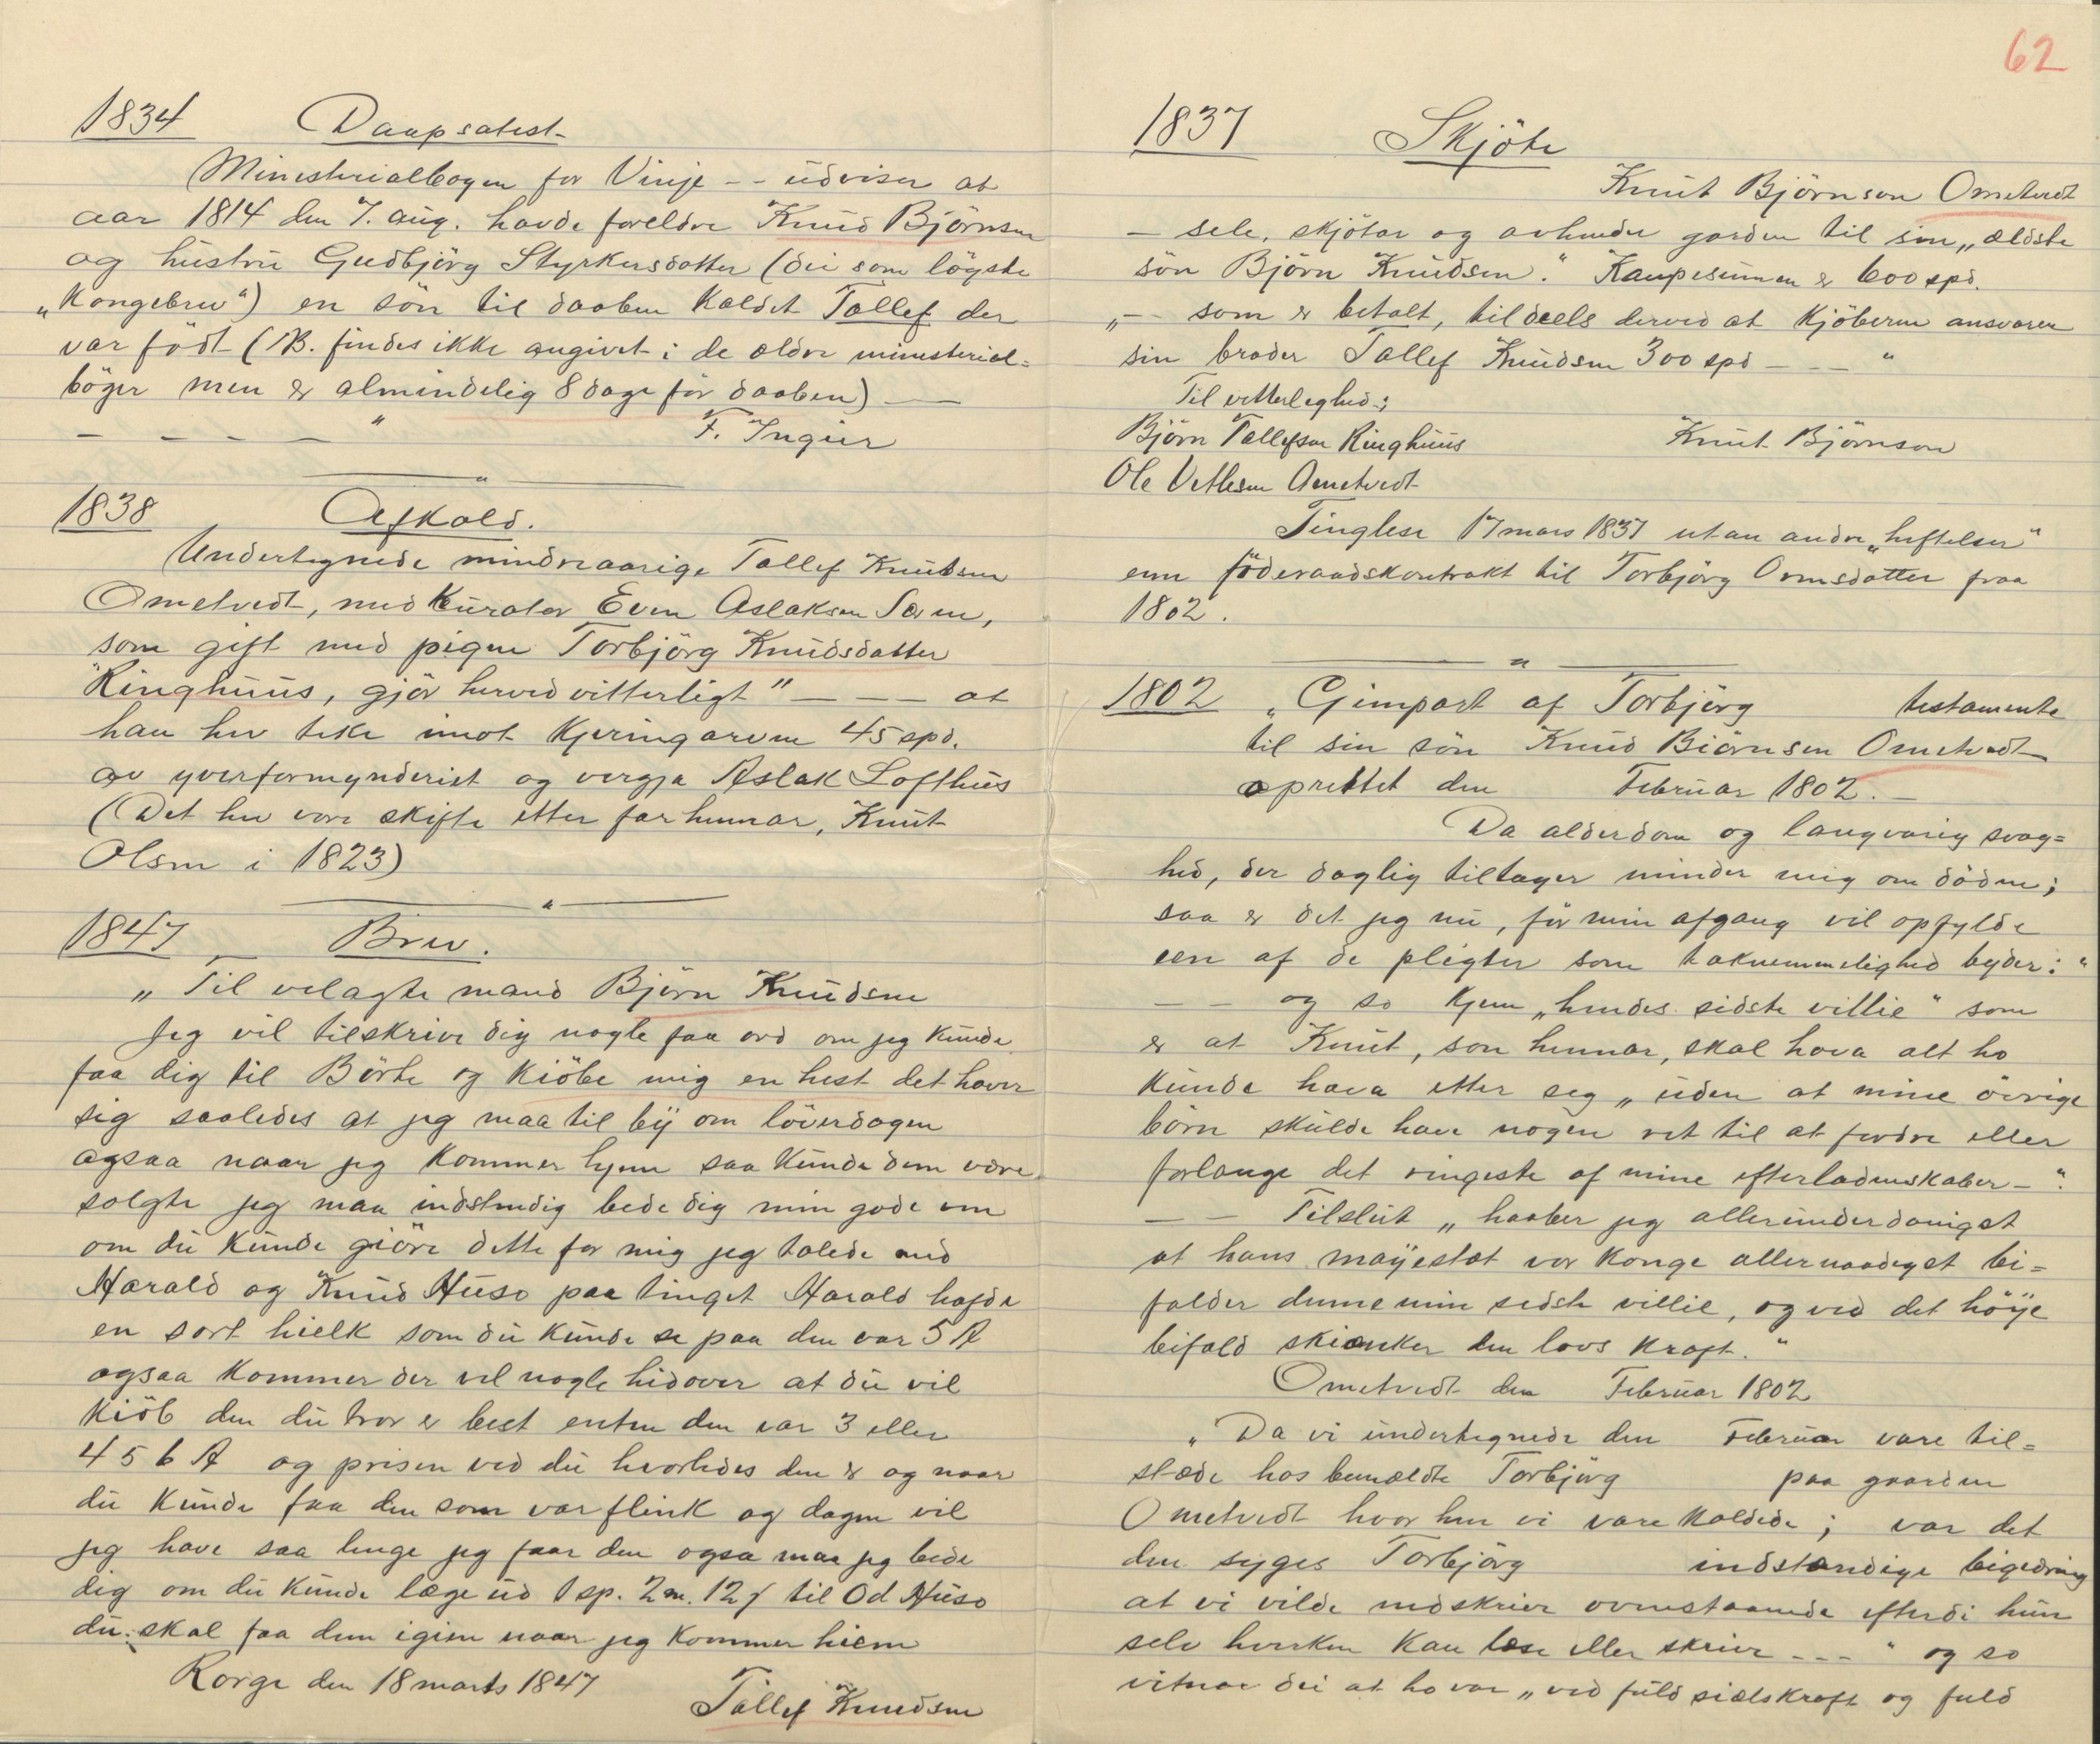 1834 Daapsatest
Ministerialbogen for Vinje -- udviser at
aar 1814 den 7. aug. havde foreldre Knud Björnsen
og hustru Gudbjörg Styrkersdatter (dei som löyste
„Kongebrev“) en sön til daaben kaldet Tallef der
var födt (NB. findes ikke angivet i de ældre ministerial=
böger men er almindelig 8 dage för daaben) —
— — — — “ F. Ingier
1838 Afkald.
Undertegnede mindreaarige Tallef Knudsen
Ometvedt, med Kurator Even Aslaksen Sem,
som gift med pigen Torbjörg Knudsdatter
Ringhuus, gjör herved vitterligt" — — at
han hev teke imot kjeringarven 45 spd.
av yverformynderiet og vergja Aslak Lofthus
(Det hev vore skifte etter far hennar, Knut
Olsen i 1823)
1847 Brev.
„Til velagte mand Björn Knudsen
Jeg vil tilskrive dig nogle faa ord om jeg kunde
faa dig til Börte og kiöbe mig en hest det haver
sig saaledes at jeg maa til bÿ om löverdagen
ogsaa naar jeg kommer hjem saa kunde dem være
solgte jeg maa indstendig bede dig min gode ven
om du kunde giöre dette for mig jeg talede med
Harald og Knud Huso paa tinget Harald hafde
en sort hielk som du kunde se paa den var 5 A
ogsaa kommer der vel nogle hidover at du vil
kiöb den du tror er best enten den var 3 eller
4 5 6 A og prisen ved du hvorledes den er og naar
du kunde faa den som var flink og dagen vil
jeg have saa lenge jeg faar den ogsa maa jeg bede
dig om du kunde læge ud 1 sp. 2 m. 12 ſ til Od Huso
du skal faa dem igien naar jeg kommer hiem
Rorge den 18 marts 1847
Tallef Knudsen
62
1837 Skjöte
Knut Björnson Ometvedt
— sele, skjötar og avhender garden til sin „ældste
sön Björn Knudsen.“ Kaupesumen er 600 spd.
„-- som er betalt, tildeels derved at Kjöberen ansvarer
sin broder Tallef Knudsen 300 spd — -- “
Til vitterleghed:
Björn Tallefsen Ringhuus Knut Björnson
Ole Vetlesen Ometvedt
Tinglese 17 mars 1837 utan andre „heftelser“
enn föderaadskontrakt til Torbjörg Ormsdatter fraa
1802.
1802 „Gienpart af Torbjörg testamente
til sin sön Knud Biörnsen Ometvedt
oprettet den Februar 1802. —
Da alderdom og langvarig svag=
hed, der daglig tiltager minder mig om döden;
saa er det jeg nu, för min afgang vil opfylde
een af de pligter som taknemmelighed byder: “
— — og so kjem „hendes sidste villie“ som
er at Knut, son hennar, skal hava alt ho
kunde hava etter seg „uden at mine övrige
börn skulde have nogen ret til at fordre eller
forlange det ringeste af mine efterladenskaber —“.
— — Tilslut „haaber jeg allerunderdanigst
at hans maÿestæt vor konge allernaadigst bi=
falder denne min sidste villie, og ved det höÿe
beifald skienker den lovs kraft. “
Ometvedt den Februar 1802
„Da vi undertegnede den Februar vare til=
stæde hos bemældte Torbjörg paa gaarden
Ometvedt hvor hen vi vare kaldede; var det
den syges Torbjörg indstændige bigedring
at vi vilde nedskrive ovenstaaende efterdi hun
selv hverken kan læse eller skrive --- “ og so
vitnar dei at ho var „ved fuld siælskraft og fuld